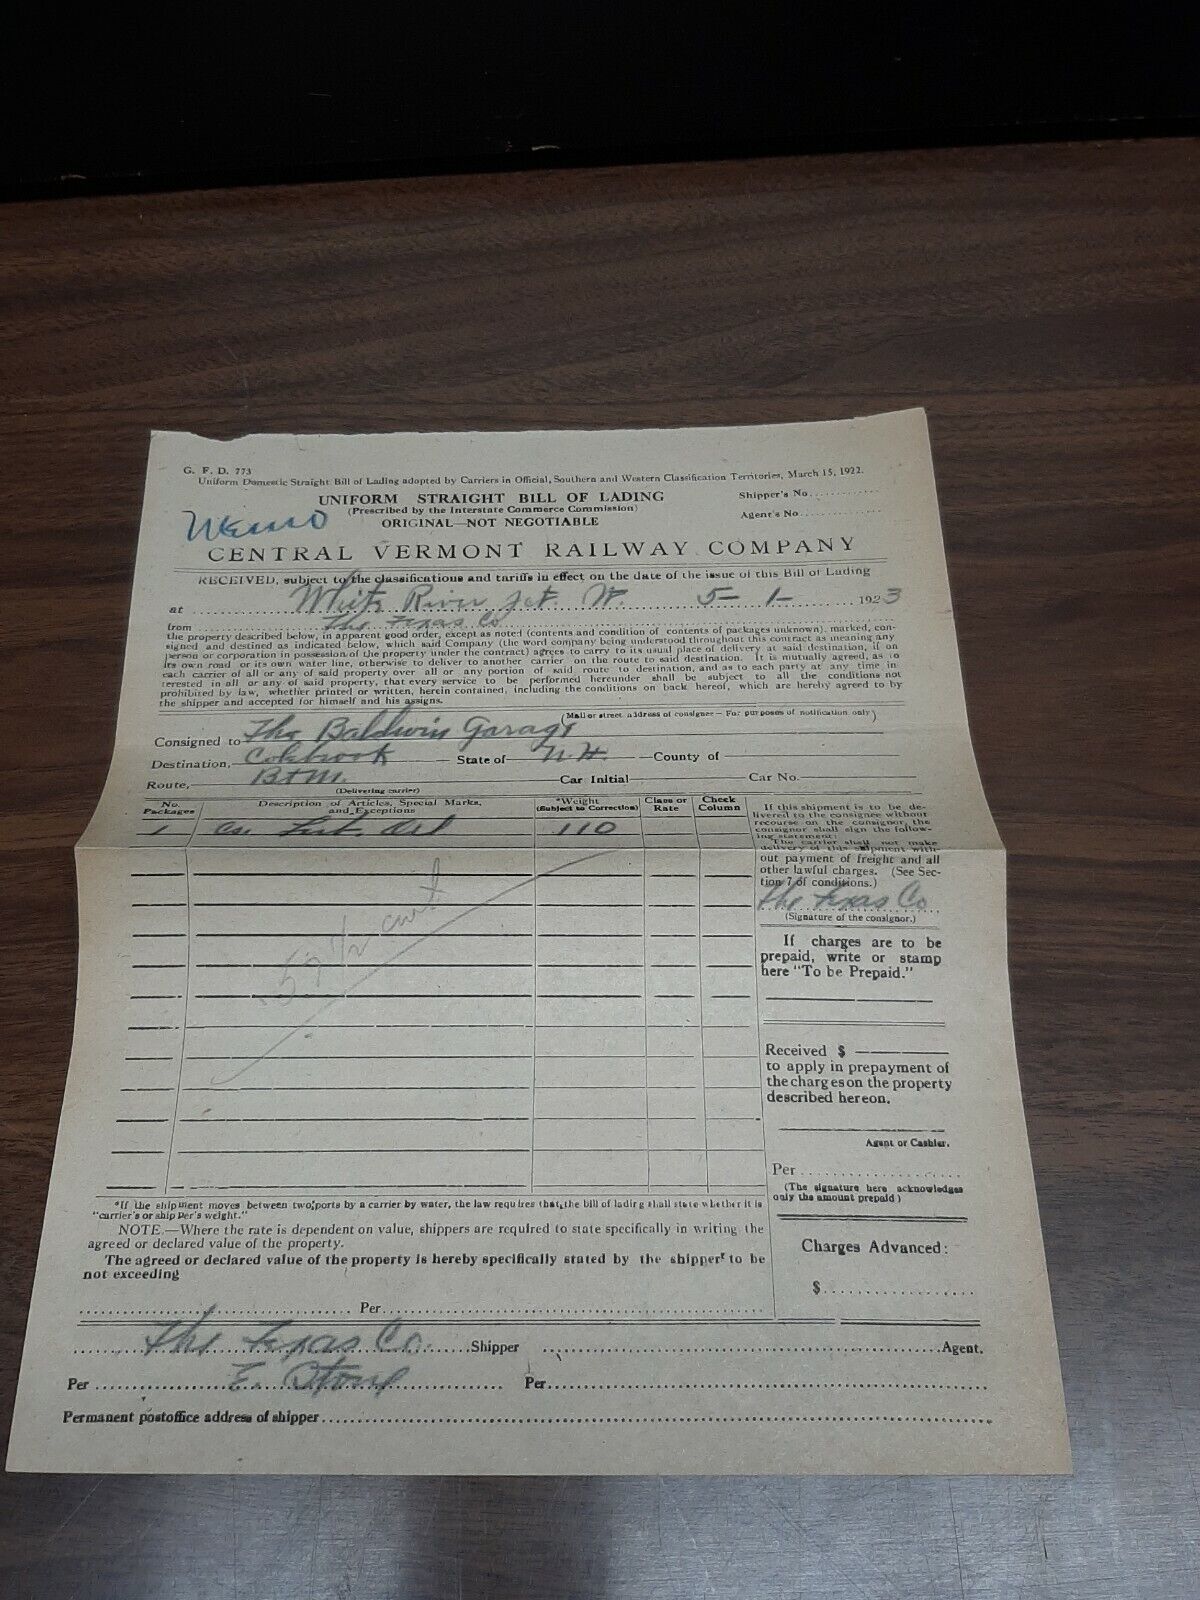 G. F. D. 773
Uniform Domestic Straight Bill of Lading adopted by Carriers in Official, Southern and Western Classification Territories, March 15, 1922.
UNIFORM STRAIGHT BILL OF LADING
(Prescribed by the Interstate Commerce Commission)
ORIGINAL—NOT NEGOTIABLE
Shipper's No.
Agent's No.
Memo
CENTRAL VERMONT RAILWAY COMPANY
RECEIVED, subject to the classifications and tariffs in effect on the date of the issue of this Bill of Lading
at White River Jct. Vt. 5-1- 1923
from The Texas Co
the property described below, in apparent good order, except as noted (contents and condition of contents of packages unknown), marked, con-
signed and destined as indicated below, which said Company (the word company being understood throughout this contract as meaning any
person or corporation in possession of the property under the contract) agrees to carry to its usual place of delivery at said destination, if on
its own road or its own water line, otherwise to deliver to another carrier on the route to said destination. It is mutually agreed, as to
each carrier of all or any of said property over all or any portion of said route to destination, and as to each party at any time in
terested in all or any of said property, that every service to be performed hereunder shall be subject to all the conditions not
prohibited by law, whether printed or written, herein contained, including the conditions on back hereof, which are hereby agreed to by
the shipper and accepted for himself and his assigns.
(Mail or street address of consignee—For purposes of notification only)
Consigned to The Baldwin Garage
Destination, Colebrook State of N.H. County of
Route, B+M. Car Initial Car No.
(Delivering carrier)
No. Packages
Description of Articles, Special Marks, and Exceptions
*Weight (Subject to Correction)
Class or Rate
Check Column
1 Cs. Lub Oil 110
.52 1/2 cwt
If this shipment is to be de-
livered to the consignee without
recourse on the consignor, the
consignor shall sign the follow-
ing statement:
The carrier shall not make
delivery of this shipment with-
out payment of freight and all
other lawful charges. (See Sec-
tion 7 of conditions.)
The Texas Co
(Signature of the consignor.)
If charges are to be
prepaid, write or stamp
here "To be Prepaid."
Received $
to apply in prepayment of
the charges on the property
described hereon.
Agent or Cashier.
Per
(The signature here acknowledges
only the amount prepaid)
Charges Advanced:
$
*If the shipment moves between two ports by a carrier by water, the law requires that the bill of lading shall state whether it is
"carrier's or shipper's weight."
NOTE.—Where the rate is dependent on value, shippers are required to state specifically in writing the
agreed or declared value of the property.
The agreed or declared value of the property is hereby specifically stated by the shipper to be
not exceeding
Per
The Texas Co. Shipper Agent.
Per E. Stone Per
Permanent postoffice address of shipper